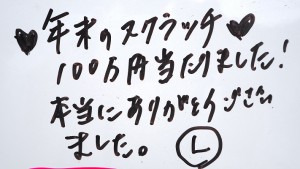 ♥年末のスクラッチ♥
100万円当たりました!
本当にありがとうござい
ました。Ⓛ